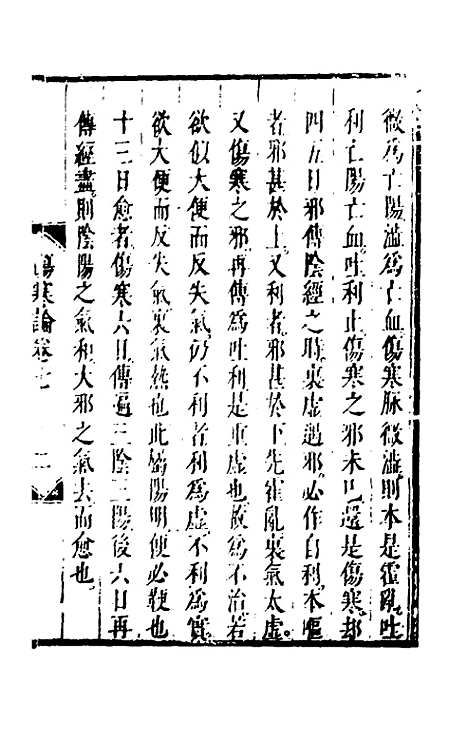 微為亡陽濇為亡血傷寒脉微濇則本是霍亂吐
利亡陽亡血吐利止傷寒之邪未已還是傷寒却
四五日邪傳陰經之時裏虛遇邪必作自利本嘔
者邪甚於上又利者邪甚於下先霍亂裏氣太虛
又傷寒之邪再傳為吐利是重虛也故為不治若
欲似大便而反失氣仍不利者利為虛不利為實
欲大便而反失氣裏氣熱也此屬陽明便必鞕也
十三日愈者傷寒六日傳遍三陰三陽後六日再
傳經盡則陰陽之氣和大邪之氣去而愈也
傷寒論卷七 二